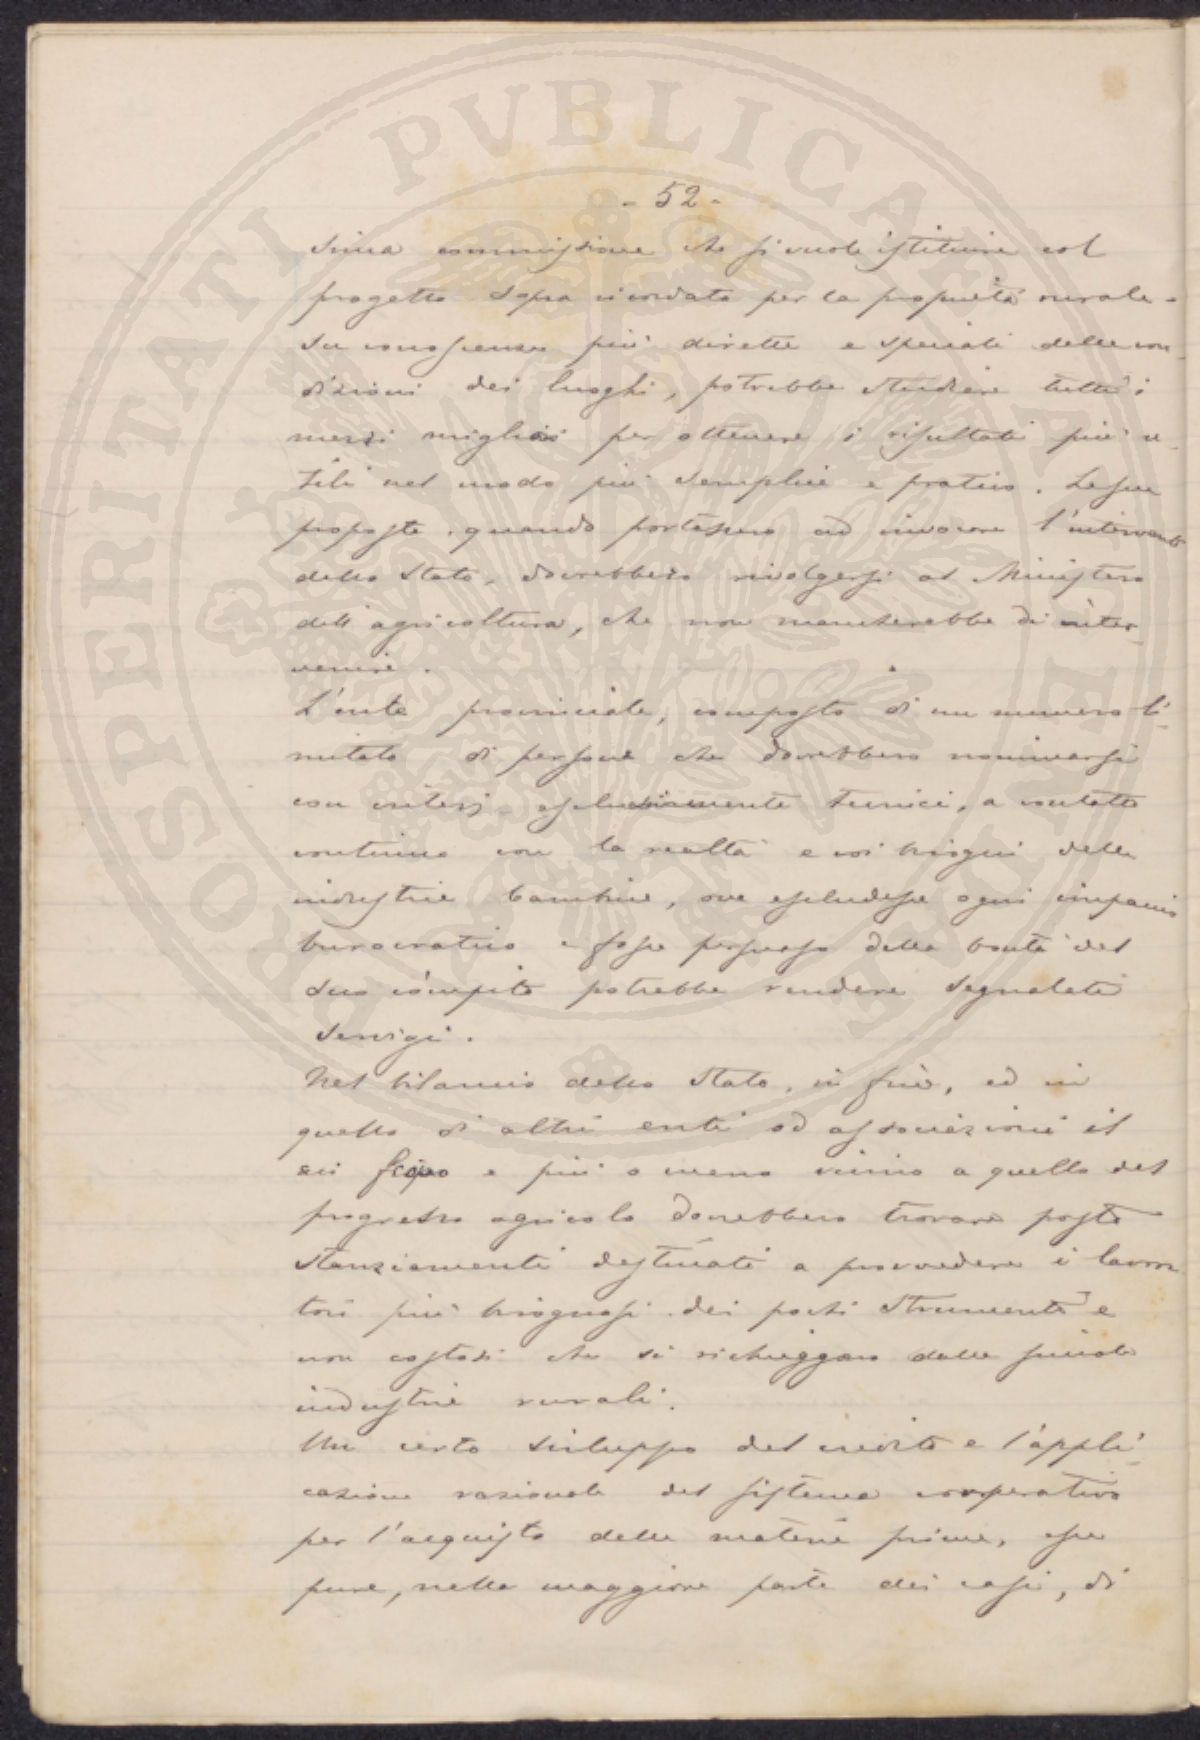 - 52 -
sima commissione che si vuole istituire col
progetto sopra ricordato per la proprietà rurale.
Su conoscenze più dirette e speciali delle con
dizioni dei luoghi, potrebbe studiare tutti i
mezzi migliori per ottenere i risultati più u-
tili nel modo più semplice e pratico. Le sue
proposte, quando portassero ad invocare l'intervento
dello Stato, dovrebbero rivolgersi al Ministero
dell'agricoltura, che non mancherebbe di inter-
venire.
L'ente provinciale, composto di un numero li-
mitato di persone che dovrebbero nominarsi
con criterj esclusivamente tecnici, a contatto
continuo con la realtà e coi bisogni delle
industrie bambine, ove escludesse ogni impaccio
burocratico e fosse persuaso della bontà del
suo cómpito potrebbe rendere segnalati
servigi.
Nel bilancio dello Stato, in fine, ed in
quello di altri enti od associazioni il
cui scopo e più o meno vicino a quello del
progresso agricolo dovrebbero trovare posto
stanziamenti destinati a provvedere i lavora
tori più bisognosi dei pochi strumenti e
non costosi che si richieggono dalle piccole
industrie rurali.
Un certo sviluppo del credito e l'appli-
cazione razionale del sistema cooperativo
per l'acquisto delle materie prime, e
pure, nella maggiore parte dei casi, di
PROSPERITATI PVBLICAE